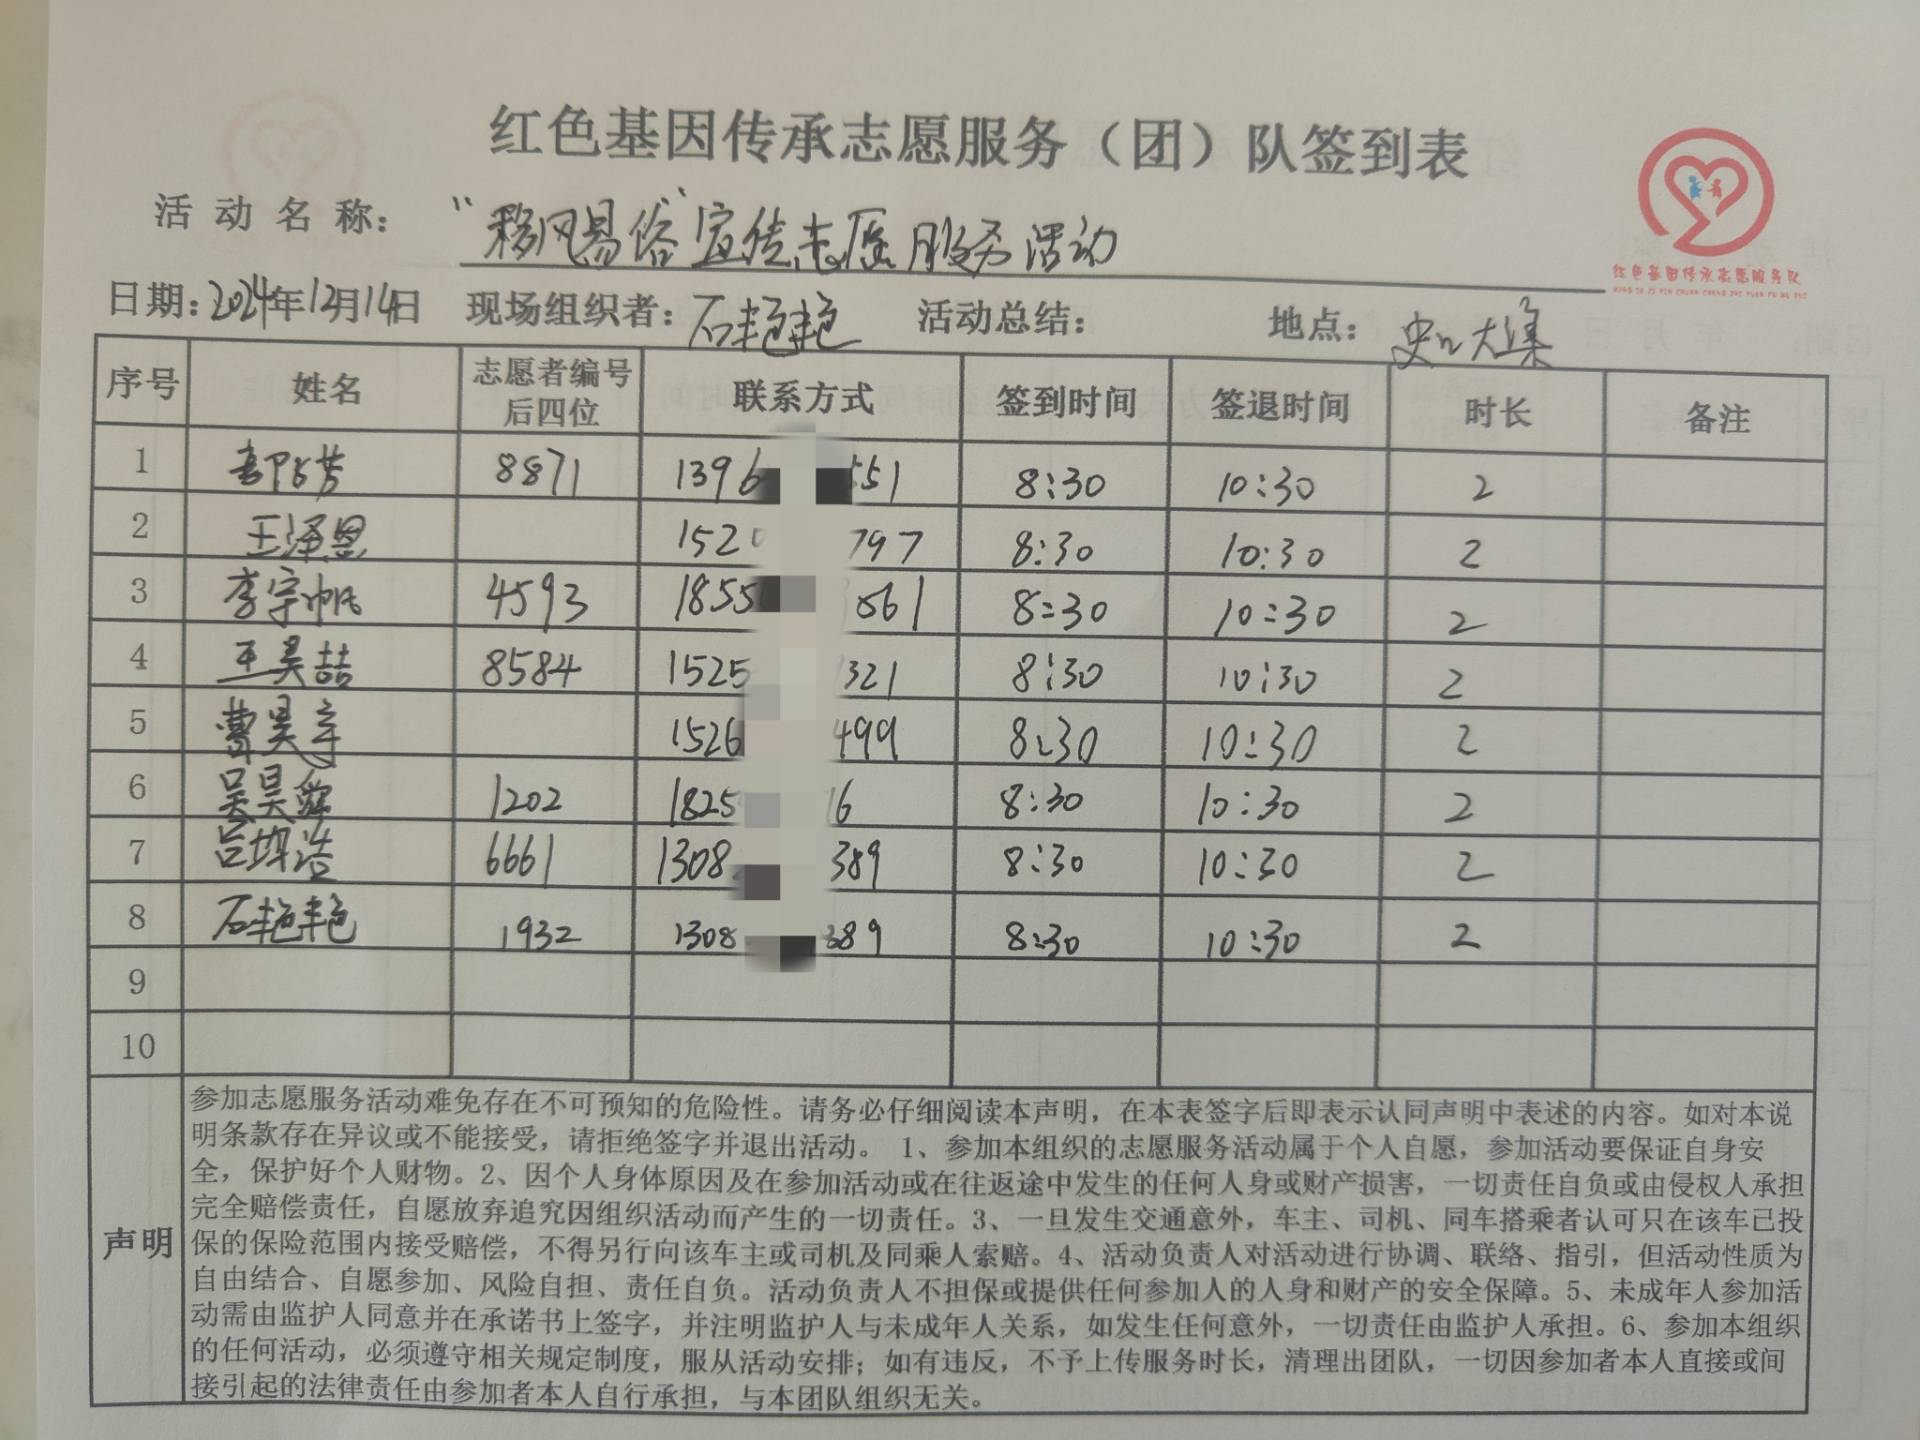 红色基因传承志愿服务（团）队签到表
活动名称：“移风易俗”宣传志愿服务活动
红色基因传承志愿服务队
日期：2024年12月14日 现场组织者：石艳艳 活动总结： 地点：史口大集
序号 姓名 志愿者编号后四位 联系方式 签到时间 签退时间 时长 备注
1 8871 1396 551 8:30 10:30 2
2 王泽恩 1520 797 8:30 10:30 2
3 李宇帆 4593 1855 661 8:30 10:30 2
4 王昊喆 8584 1525 321 8:30 10:30 2
5 曹昊宇 1526 499 8:30 10:30 2
6 吴昊舜 1202 1825 16 8:30 10:30 2
7 吕坤浩 6661 1308 389 8:30 10:30 2
8 石艳艳 1932 1308 389 8:30 10:30 2
9
10
声明
参加志愿服务活动难免存在不可预知的危险性。请务必仔细阅读本声明，在本表签字后即表示认同声明中表述的内容。如对本说
明条款存在异议或不能接受，请拒绝签字并退出活动。 1、参加本组织的志愿服务活动属于个人自愿，参加活动要保证自身安
全，保护好个人财物。2、因个人身体原因及在参加活动或在往返途中发生的任何人身或财产损害，一切责任自负或由侵权人承担
完全赔偿责任，自愿放弃追究因组织活动而产生的一切责任。3、一旦发生交通意外，车主、司机、同车搭乘者认可只在该车已投
保的保险范围内接受赔偿，不得另行向该车主或司机及同乘人索赔。4、活动负责人对活动进行协调、联络、指引，但活动性质为
自由结合、自愿参加、风险自担、责任自负。活动负责人不担保或提供任何参加人的人身和财产的安全保障。5、未成年人参加活
动需由监护人同意并在承诺书上签字，并注明监护人与未成年人关系，如发生任何意外，一切责任由监护人承担。6、参加本组织
的任何活动，必须遵守相关规定制度，服从活动安排；如有违反，不予上传服务时长，清理出团队，一切因参加者本人直接或间
接引起的法律责任由参加者本人自行承担，与本团队组织无关。